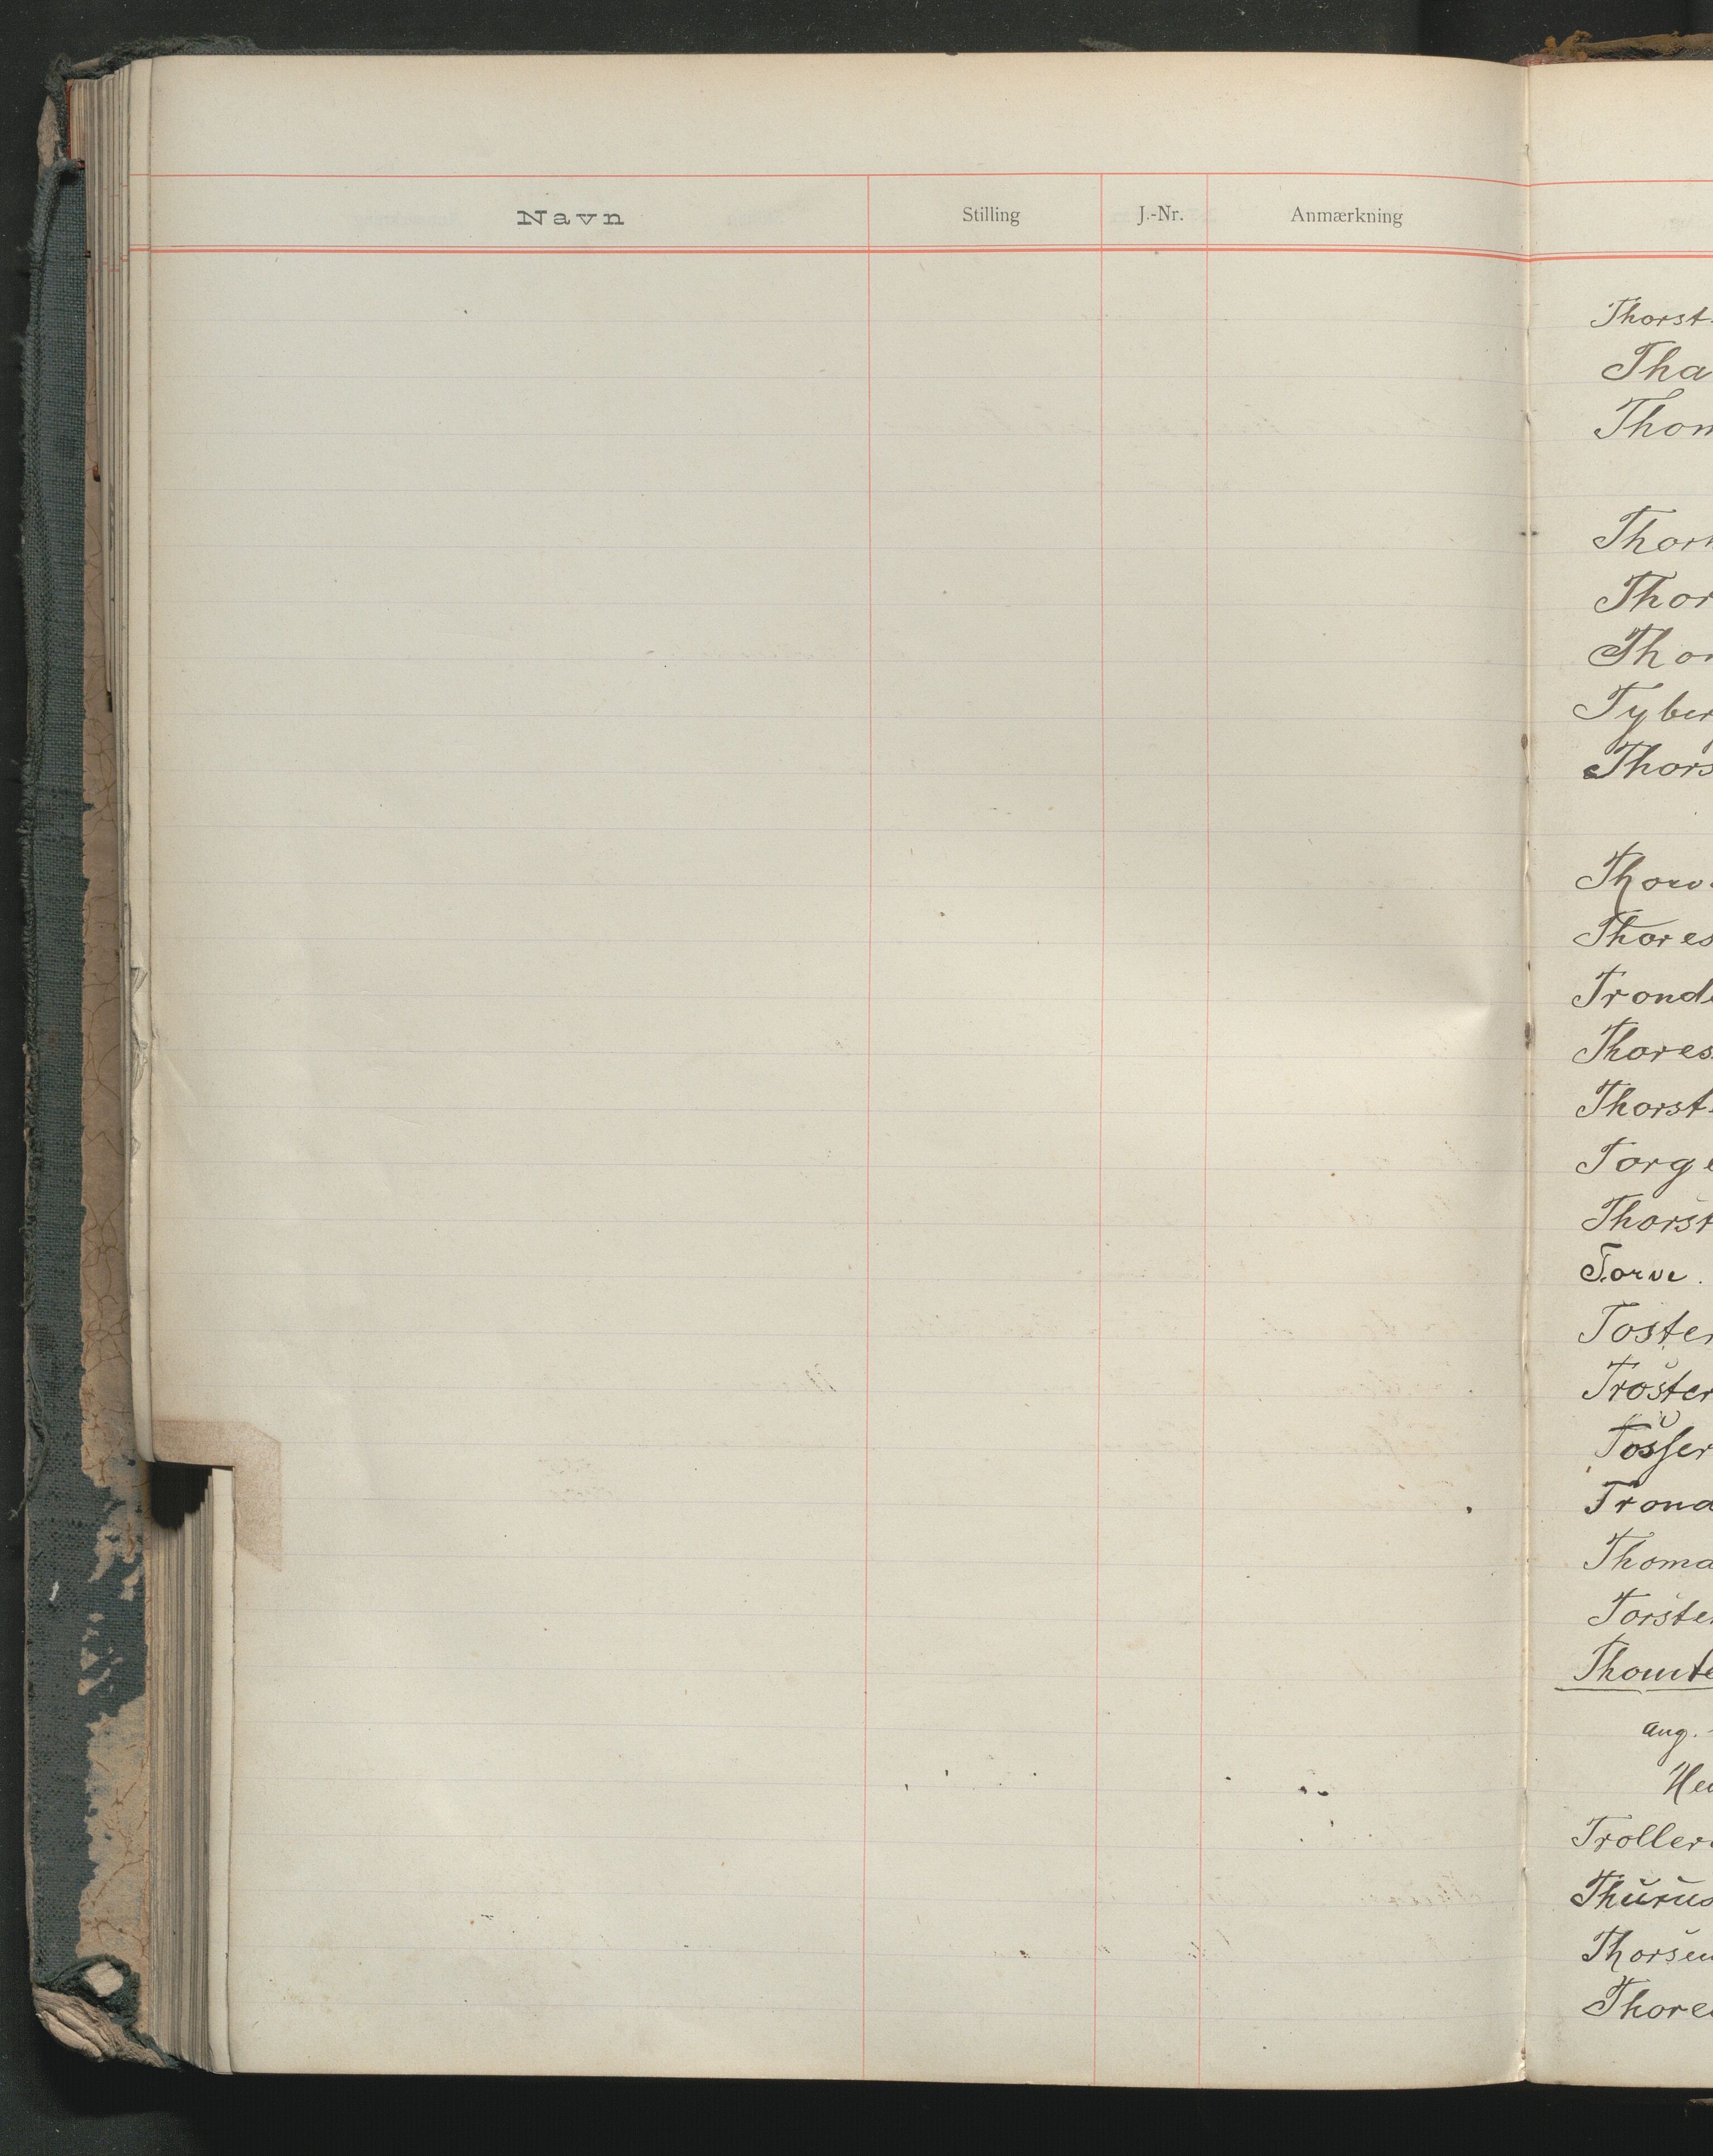 Navn Stilling J.-Nr. Anmærkning
Thorst
Tha
Thom
Thor
Thor
Tyber
Thors
Thores
Trond
Thores
Thorst
Torge
Thorst
Torve.
Tosten
Troster
Trond
Thoma
Torste
Aug.
Troller
Thorsen
Thore